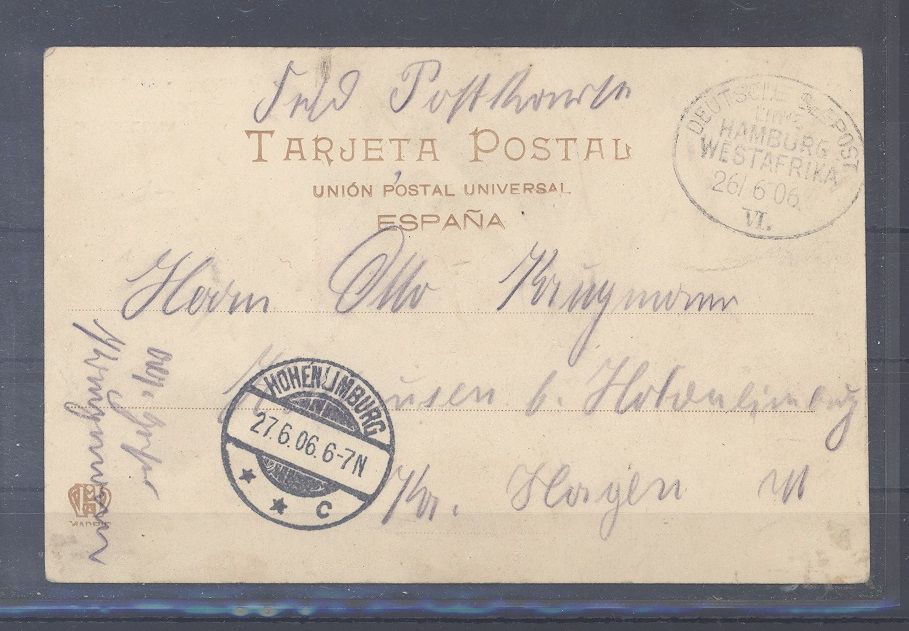 Feld Postkarte
TARJETA POSTAL
UNIÓN POSTAL UNIVERSAL
ESPAÑA
DEUTSCHE SEEPOST
LINIE
HAMBURG
WESTAFRIKA
26/6 06.
VI.
Herrn Otto Krugmann
b. Hohenlimburg
Kr. Hagen W
HOHENLIMBURG
27.6.06.6-7N
* * C
Krugmann
MADRID